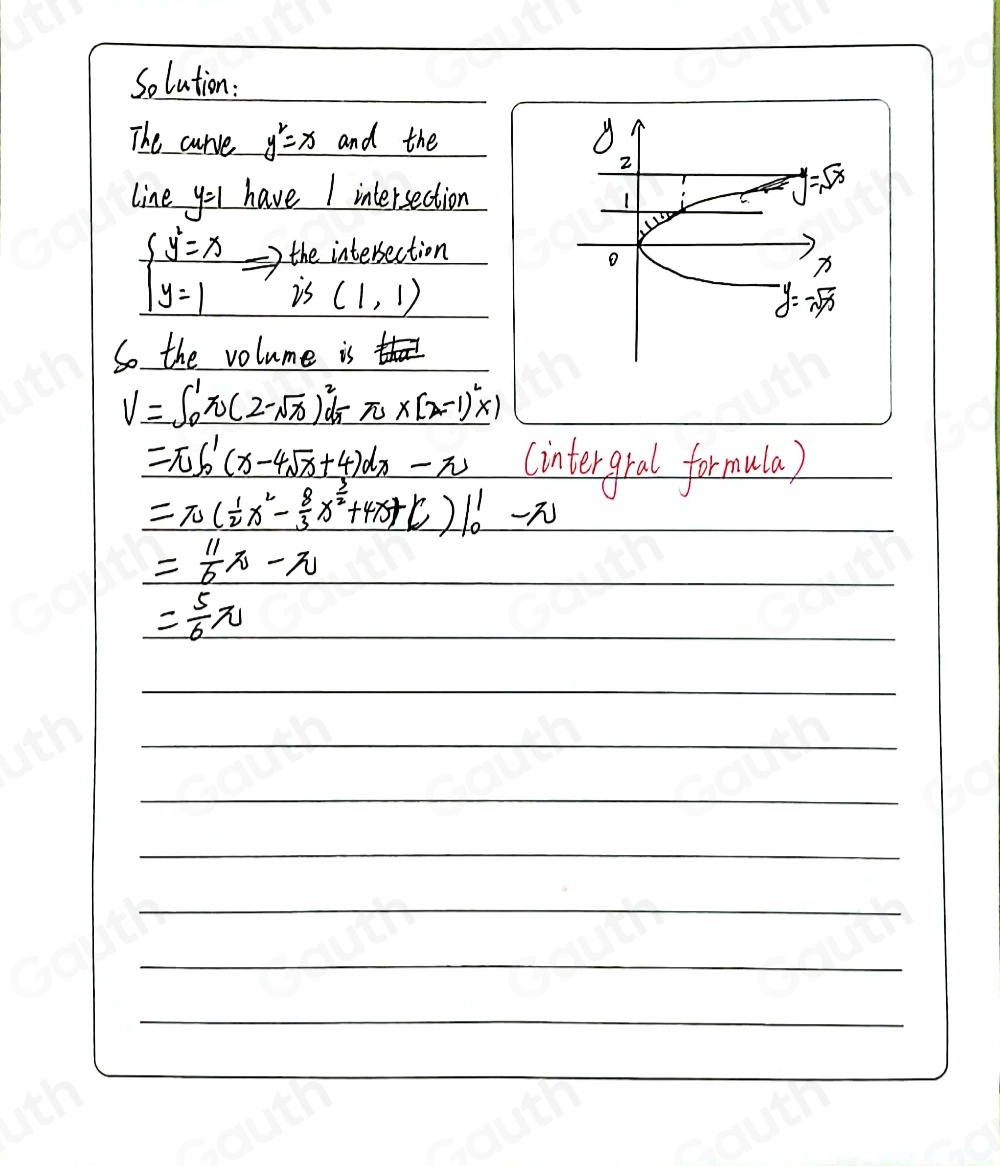 Solution:
The curve y²=x and the
line y=1 have 1 intersection
{y²=x ⇒ the intersection
y=1 is (1,1)
So the volume is
V=∫₀¹π(2-√x)²dx-π×[2-1)²×1
=π∫₀¹(x-4√x+4)dx -π (intergral formula)
=π(½x²-8/3x^(3/2)+4x+C)|₀¹ -π
=11/6π-π
=5/6π
y
2
1
0
x
y=√x
y=-√x
Gauth